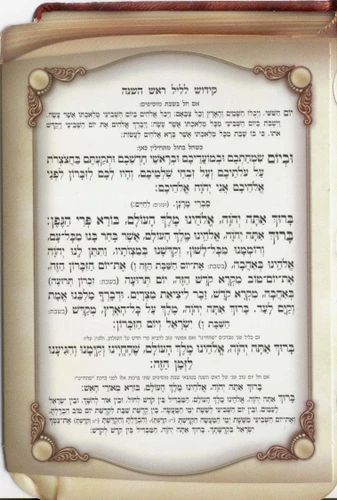 קידוש לליל ראש השנה
אם חל בשבת מוסיפים:
יום הששי. ויכלו השמים והארץ וכל צבאם: ויכל אלהים ביום השביעי מלאכתו אשר עשה
וישבת ביום השביעי מכל מלאכתו אשר עשה: ויברך אלהים את יום השביעי ויקדש
אתו. כי בו שבת מכל מלאכתו אשר ברא אלהים לעשות:
כשחל בחול מתחילין כאן:
וביום שמחתכם ובמועדיכם ובראשי חדשכם ותקעתם בחצצרת
על עלתיכם ועל זבחי שלמיכם, והיו לכם לזכרון לפני
אלהיכם אני יהוה אלהיכם:
סברי מרנן, (ועונים: לחיים:)
ברוך אתה יהוה, אלהינו מלך העולם, בורא פרי הגפן:
ברוך אתה יהוה, אלהינו מלך העולם, אשר בחר בנו מכל־עם,
ורוממנו מכל־לשון, וקדשנו במצותיו, ותתן לנו יהוה
אלהינו באהבה (בשבת: את־יום השבת הזה ו) את־יום הזכרון הזה,
את־יום טוב מקרא קדש הזה, יום (בשבת: זכרון תרועה)
באהבה מקרא קדש, זכר ליציאת מצרים. ודברך מלכנו אמת
וקים לעד. ברוך אתה יהוה, מלך על כל־הארץ, מקדש (בשבת:
השבת ו) ישראל ויום הזכרון:
ברוך אתה יהוה, אלהינו מלך העולם, שהחיינו וקימנו והגיענו
לזמן הזה:
ברוך אתה יהוה, אלהינו מלך העולם, בורא מאורי האש:
ברוך אתה יהוה, אלהינו מלך העולם, המבדיל בין קדש לחול, ובין אור לחשך, ובין ישראל
לעמים, ובין יום השביעי לששת ימי המעשה. בין קדשת שבת לקדשת יום טוב הבדלת,
ואת־יום השביעי מששת ימי המעשה קדשת, והבדלת וקדשת את־עמך
ישראל בקדשתך. ברוך אתה יהוה, המבדיל בין קדש לקדש: